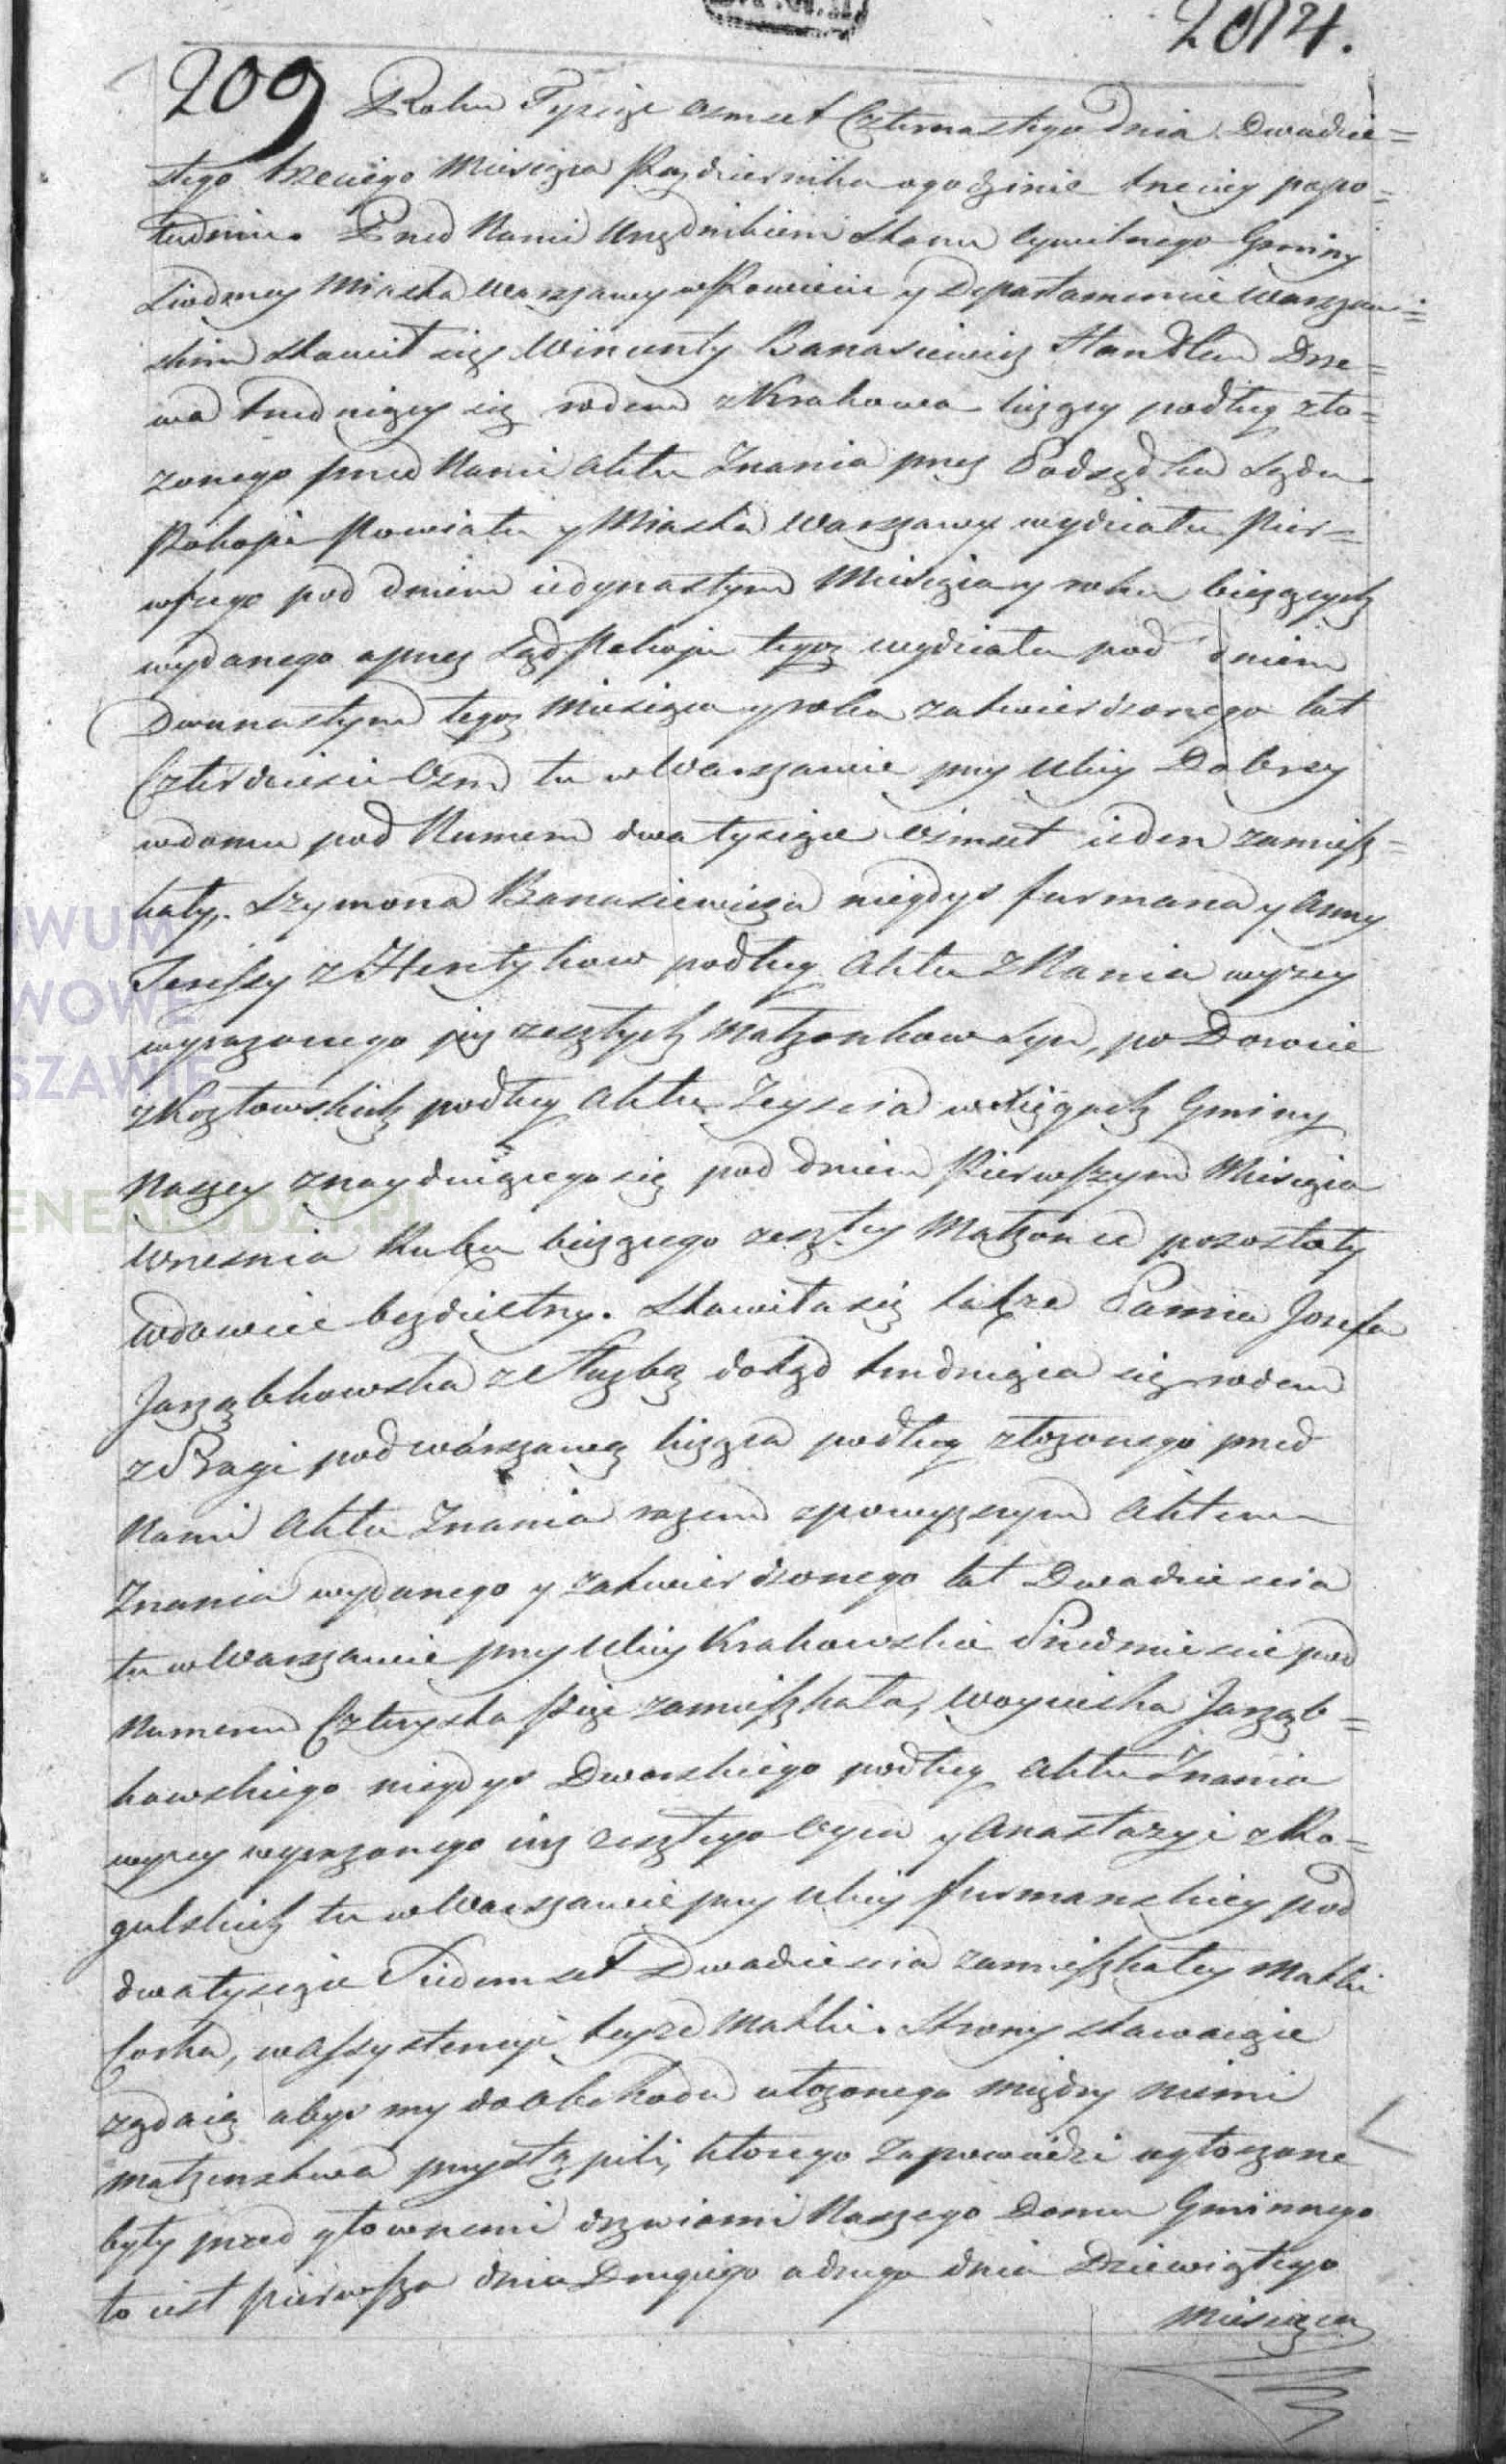 2084.
209 Roku Tysiąc osmset Czternastego dnia Dwudzie=
stego trzeciego Miesiąca Października o godzinie trzeciey popo=
łudniu. Przed Nami Urzędnikiem Stanu Cywilnego Gminy
Siodmey Miasta Warszawy w Powiecie y Departamencie Warszaw=
skim stawił się Wincenty Banasiewicz Handlem Drze=
wa trudniący się rodem z Krakowa liczący podług zło=
zonego przed Nami Aktu Znania przez Podsędka Sądu
Pokoju Powiatu y Miasta Warszawy wydziału Pier=
wszego pod dniem iedynastym Miesiąca y roku bieżących
wydanego a przez Sąd Pokoju tegoz wydziału pod dniem
Dwunastym tegoz Miesiąca y roku zatwierdzonego lat
Czterdzieści Osm tu w Warszawie przy Ulicy Dobrey
w domu pod Numerem dwa tysiące osmset ieden zamiesz=
kały. Szymona Banasiewicza niegdys furmana y Anny
Teressy z Hentykow podług Aktu Znania wyzey
wyrazonego juz zeszłych Małzonkow syn, po Dorocie
z Kozłowskich podług Aktu Zeyscia w Xięgach Gminy
Naszey znayduiącego się pod dniem Pierwszym Miesiąca
Wrzesnia Roku bieżącego zeszłey Małzonce pozostały
Wdowiec bezdzietny. Stawiła się także Panna Jozefa
Jarząbkowska ze służby dotąd trudniąca się rodem
z Pragi pod Warszawą licząca podług złozonego przed
Nami Aktu Znania razem z powyzszym Aktem
Znania wydanego y zatwierdzonego lat Dwadziescia
tu w Warszawie przy Ulicy Krakowskie Przedmiescie pod
Numerem Czterysta Pięć zamieszkała, Woyciecha Jarząb=
kowskiego niegdys Dworskiego podług Aktu Znania
wyzey wyrazonego iuz zeszłego Oyca y Anastazyi z Ro=
gulskich tu w Warszawie przy Ulicy furmanskiey pod
dwa tysiące Siedemset Dwadziescia zamieszkałey Matki
Corka, w assystencyi teyze Matki. Strony stawaiące
ządaią abysmy do obchodu ułozonego między niemi
małzenstwa przystąpili, ktorego Zapowiedzi ogłoszone
były przed głownemi drzwiami Naszego Domu Gminnego
to iest pierwsza dnia Drugiego a druga dnia Dziewiątego
Miesiąca